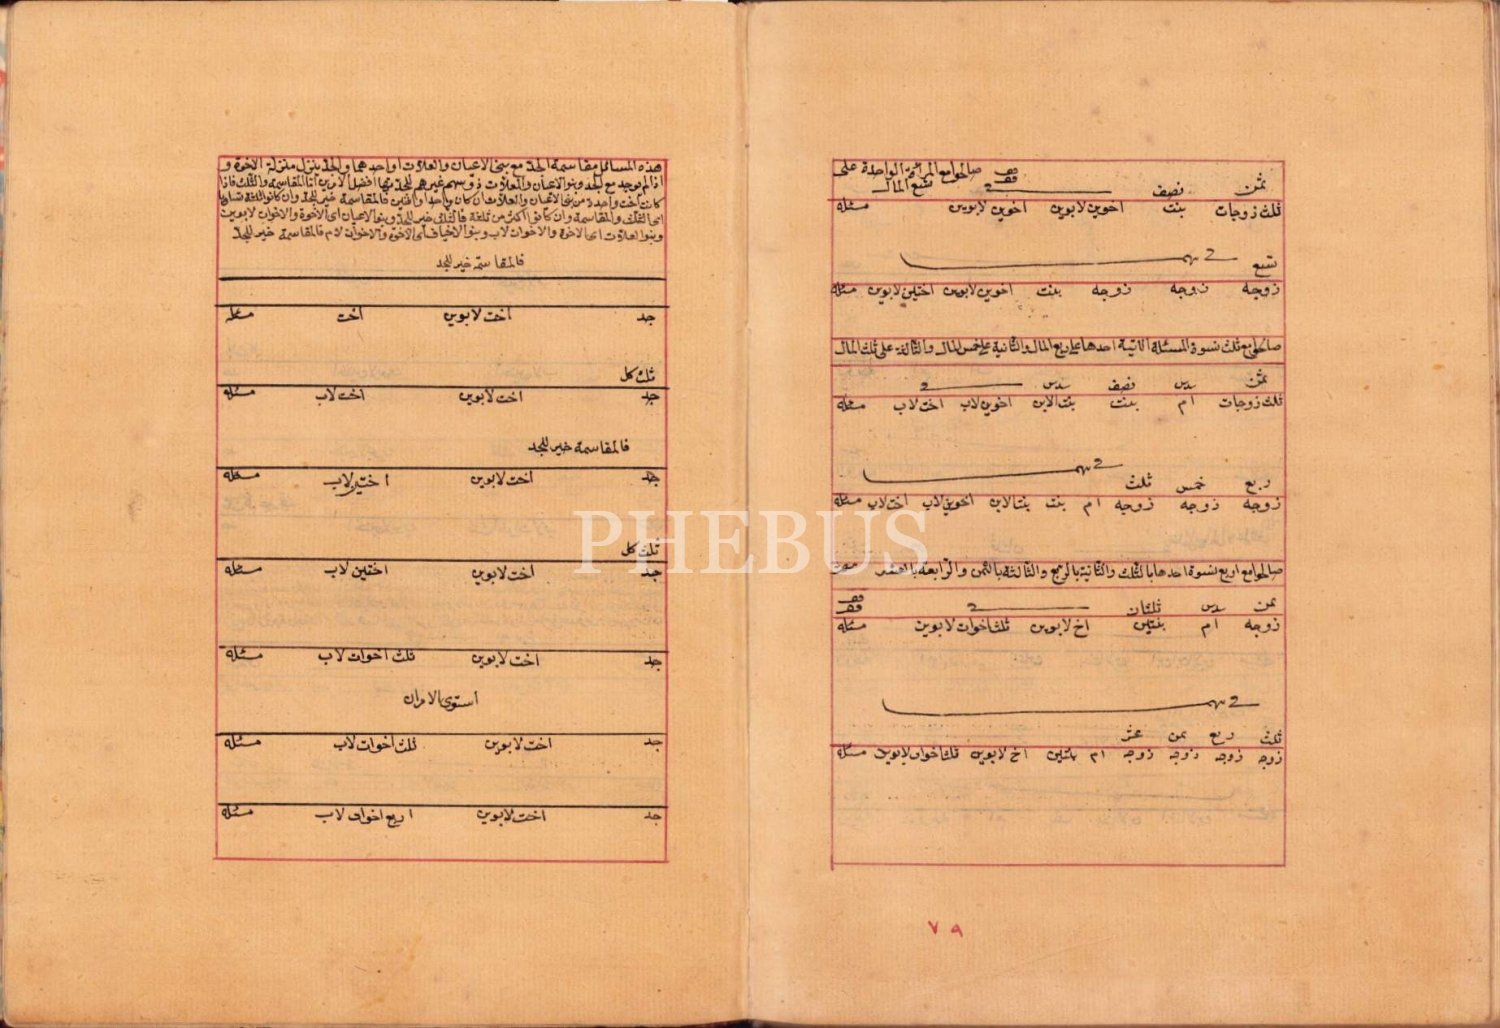 صالحوا مع المرأة الواحدة على
ثمن نصف تسع المال
ثلث زوجات بنت اخوين لابوين اخوين لابوين مسئله
تسع
زوجه زوجه زوجه بنت اخوين لابوين اختين لابوين مسئله
صالحوا مع ثلث نسوة المسئلة الآتية احدها على ربع المال والثانية على خمس المال والثالثة على ثلث المال
ثمن سدس نصف سدس
ثلث زوجات ام بنت بنت الابن اخوين لاب اخت لاب مسئله
ربع خمس ثلث
زوجه زوجه زوجه ام بنت بنت الابن اخوين لاب اخت لاب مسئله
صالحوا مع اربع نسوة احدها بالثلث والثانية بالربع والثالثة بالثمن والرابعة بالعشر
ثمن سدس ثلثان
زوجه ام بنتين اخ لابوين ثلث اخوات لابوين مسئله
ثلث ربع ثمن عشر
زوجه زوجه زوجه زوجه ام بنتين اخ لابوين ثلث اخوات لابوين مسئله
٧٩
هذه المسائل مقاسمة الجد مع بنى الاعيان والعلات او احدهما والجد ينزل منزلة الاخوة و
اذا لم يوجد مع الجد وبنو الاعيان والعلات ذو سهم غيرهم للجد افضل الامرين اما المقاسمة والثلث فاذا
كان اخت واحدة من بنى الاعيان والعلات او كان واحد او اثنين فالمقاسمة خير للجد وان كانوا ثلثة تساويا
اى الثلث والمقاسمة وان كانوا اكثر من ثلثة فالثلث خير للجد وبنو الاعيان اى الاخوة والاخوات لابوين
وبنو العلات اى الاخوة والاخوات لاب وبنو الاخياف اى الاخوة والاخوات لام فالمقاسمة خير للجد
فالمقاسمة خير للجد
جد اخت لابوين اخت مسئله
ثلث كل
جد اخت لابوين اخت لاب مسئله
فالمقاسمة خير للجد
جد اخت لابوين اختين لاب مسئله
ثلث كل
جد اخت لابوين اختين لاب مسئله
جد اخت لابوين ثلث اخوات لاب مسئله
استوى الامران
جد اخت لابوين ثلث اخوات لاب مسئله
جد اخت لابوين اربع اخوات لاب مسئله
PHEBUS